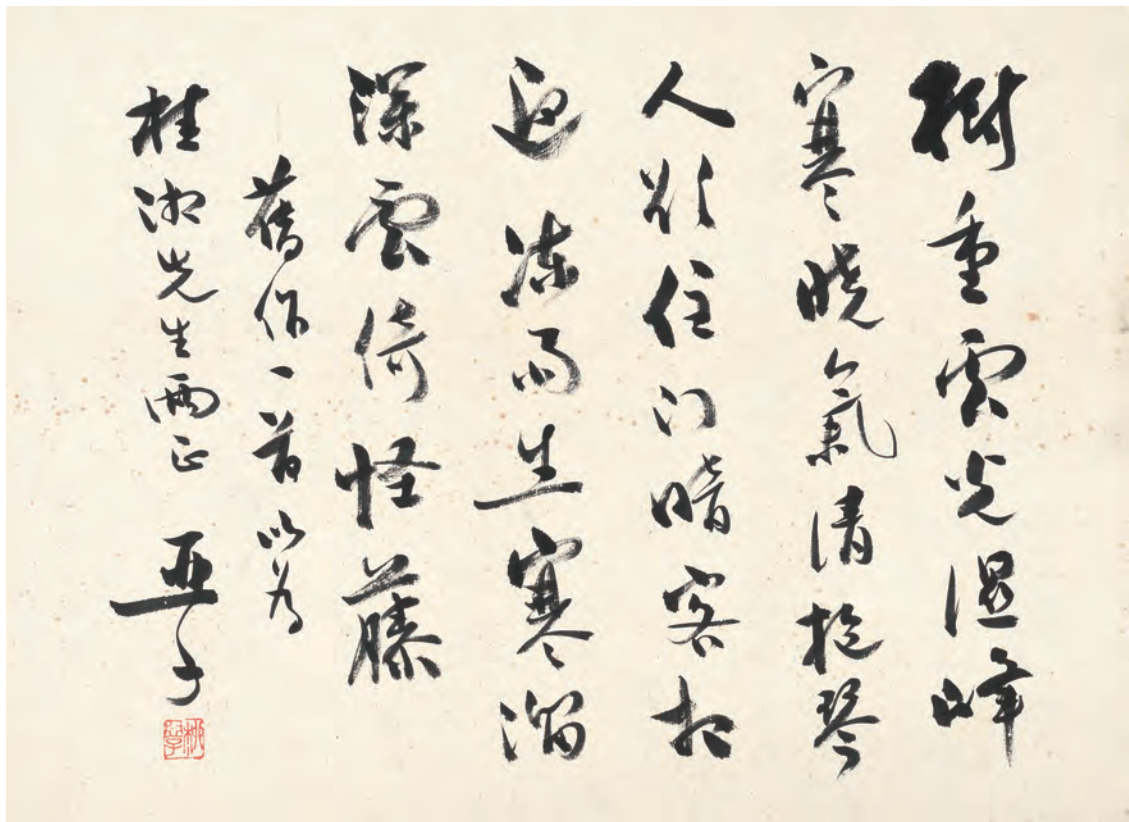 樹重雲光濕峰
寒曉氣清抱琴
人欲住门暗客相
迎凍雨生寒溜
深雲倚怪藤
舊作一首以為
桂湘先生兩正 亞子